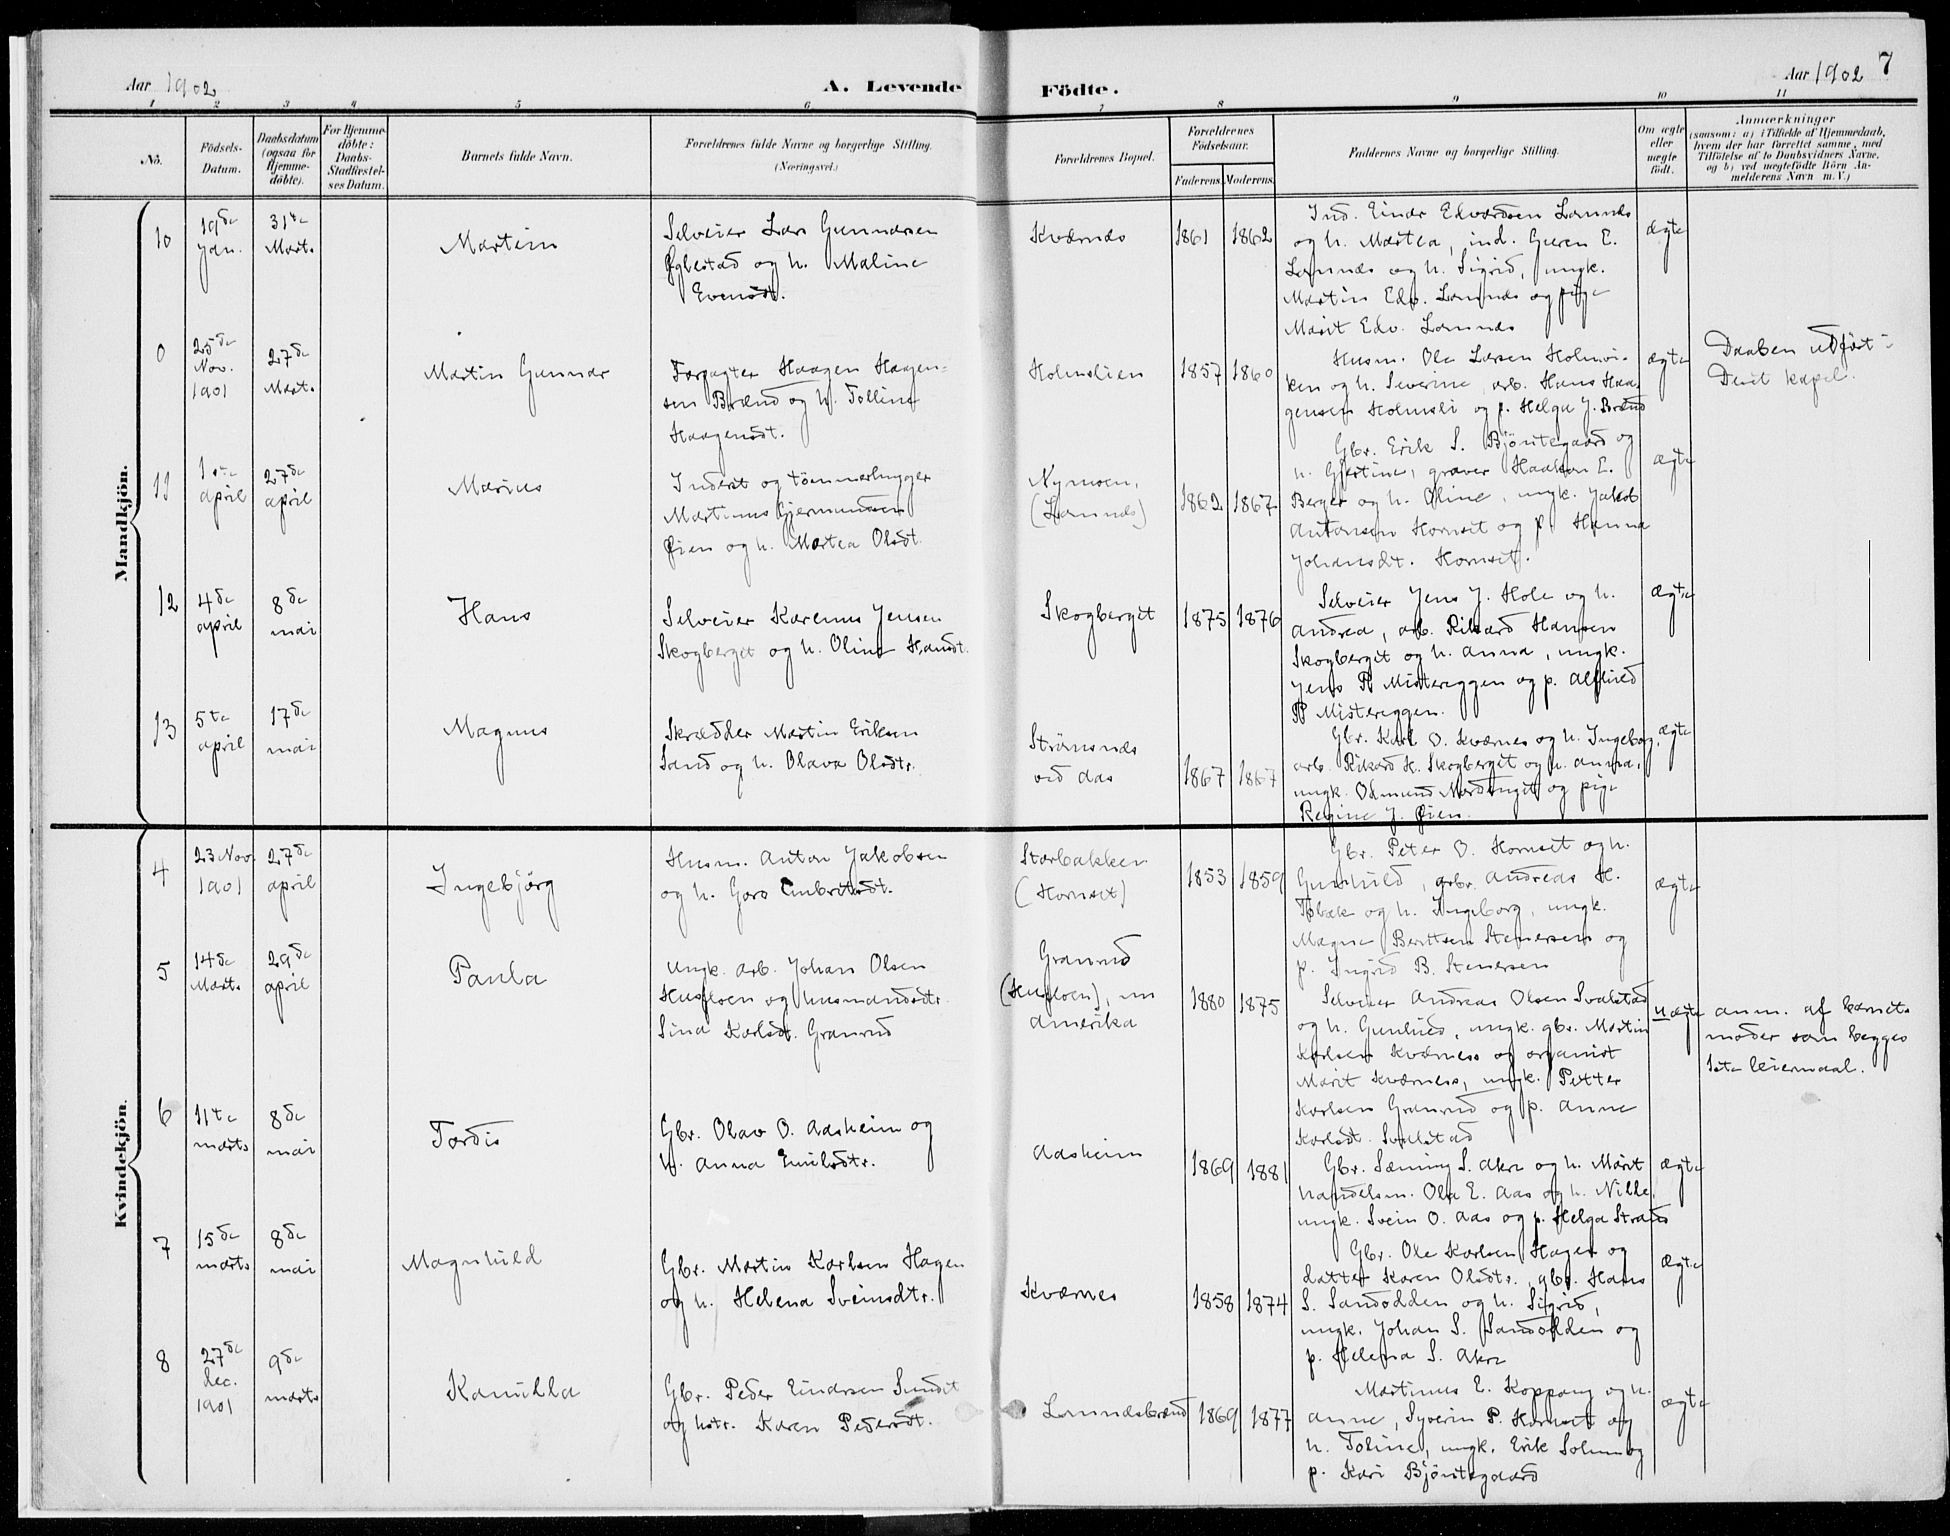 Aar 1902
A. Levende
Födte.
Aar 1902
7
1 2 3 4 5 6 7 8 9 10 11
No.
Födsels-
Datum.
Daabsdatum
(ogsaa for
Hjemme-
döbte).
For Hjemme-
döbte:
Daabs-
Stadfæstel-
ses Datum.
Barnets fulde Navn.
Forældrenes fulde Navne og borgerlige Stilling.
(Næringsvei.)
Forældrenes Bopæl.
Forældrenes
Födselsaar.
Faderens. Moderens.
Faddernes Navne og borgerlige Stilling.
Om ægte
eller
uægte
födt.
Anmærkninger
(saasom: a) i Tilfælde af Hjemmedaab,
hvem der har forrettet samme, med
Tilföielse af to Daabsvidners Navne,
og b) ved uægtefödte Börn An-
melderens Navn m. V.)
Mandkjön.
10
19de
Jan.
31te
Marts
Martin
Selveier Lars Gunnarsen
Øglestad og h. Maline
Evensdt.
Kværnes
1861 1862
Ind. Einar Edvardsen Lomnæs
og h. Martea, ind. E.
Lomnæs og h. Sigrid, ungk.
Martin Edv. Lomnæs og pige
Marit Edv. Lomnæs
ægte
0
25de
Nov.
1901
27de
Marts
Martin Gunnar
Forpagter Haagen Haagen-
sen Brænd og h. Tolline
Haagensdt.
Holmslien
1857 1860
Husm. Ole Larsen Holmvi-
ken og h. Severine, arb. Hans Haa-
gensen Holmsli og p. Helga J. Brænd
ægte
Daaben udført i
Deset kapel.
11
1ste
april
27de
april
Marius
Inderst og tömmerhugger
Martinus Gjermundsen
Øien og h. Martea Olsdt.
Nymoen,
(Lomnæs)
1862 1867
Gbr. Erik S. Bjöntegaard og
h. Gjertine, graver Haakon E.
Berger og h. Oline, ungk. Jakob
Antonsen Hornset og p. Hanna
Johansdt. Hornset.
ægte
12
4de
april
8de
mai
Hans
Selveier Karenus Jensen
Skogberget og h. Oline Hansdt.
Skogberget
1875 1876
Selveier Jens J. Hole og h.
Andrea, arb. Rikard Hansen
Skogberget og h. Anna, ungk.
Jens P. Mistereggen og p. Alfhild
P. Mistereggen.
ægte
13
5te
april
17de
mai
Magnus
Skrædder Martin Eriksen
Sand og h. Olava Olsdtr.
Strömsnæs
ved Aas
1867 1867
Gbr. Karl O. Kværnes og h. Ingeborg,
arb. Rikard H. Skogberget og h. Anna,
ungk. og pige
Regine J. Øien.
ægte
Kvindekjön.
4
23 Nov.
1901
27de
april
Ingebjörg
Husm. Anton Jakobsen
og h. Goro Embretsdt.
Storbakken
(Hornset)
1853 1859
Gbr. Peter O. Hornset og h.
Gunhild, arbr. Andreas H.
og h. Ingeborg, ungk.
Magne Berntsen Stenersen og
p. Ingrid B. Stenersen
ægte
5
14de
Marts
29de
april
Paula
Ungk. arb. Johan Olsen
Husfloen og husmandsdtr.
Sina Karlsdt. Granrud
Granrud
(Husfloen), nu
Amerika
1880 1875
Selveier Andreas Olsen Svalstad
og h. Gunhild, ungk. gbr. Martin
Karlsen Kværness og organist
Marit Kværness, ungk. Petter
Karlsen Granrud og p. Anne
Karlsdt. Svalstad
uægte
anm. af barnets
moder som begges
1ste leiermaal.
6
11te
marts
8de
mai
Tordis
Gbr. Olav O. Aasheim og
h. Anna Emilsdtr.
Aasheim
1869 1881
Gbr. Sæming S. Akre og h. Marit
handelsm. Ola E. Aas og h. Nille,
ungk. Svein O. Aas og p. Helga Strand
ægte
7
15de
marts
8de
mai
Magnhild
Gbr. Martin Karlsen Hagen
og h. Helena Sveinsdtr.
Kværnes
1858 1874
Gbr. Ole Karlsen Hagen og
datter Karen Olsdtr., gbr. Hans
S. Sandodden og h. Sigrid,
ungk. Johan S. Sandodden og
p. Helena S. Akre
ægte
8
27de
dec.
1901
9de
marts
Kamilla
Gbr. Peder Einarsen Sundet
og hstr. Karen Pedersdt.
Lomnæsbrænd
1869 1877
Martinus E. Koppang og h.
Anne, Syverin P. Hornset og
h. Toline, ungk. Erik Solum og
p. Kari Bjöntegaard
ægte